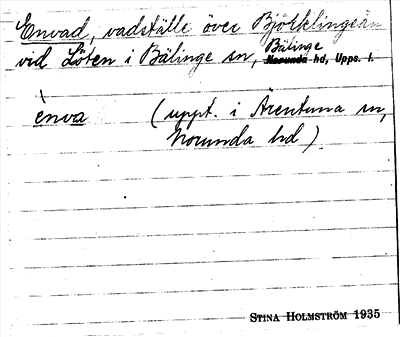 Envad, vadställe över Björklingeån
vid Löten i Bälinge sn, Bälinge Norunda hd, Upps. l.
enva (uppt. i Ärentuna sn,
Norunda hd).
STINA HOLMSTRÖM 1935